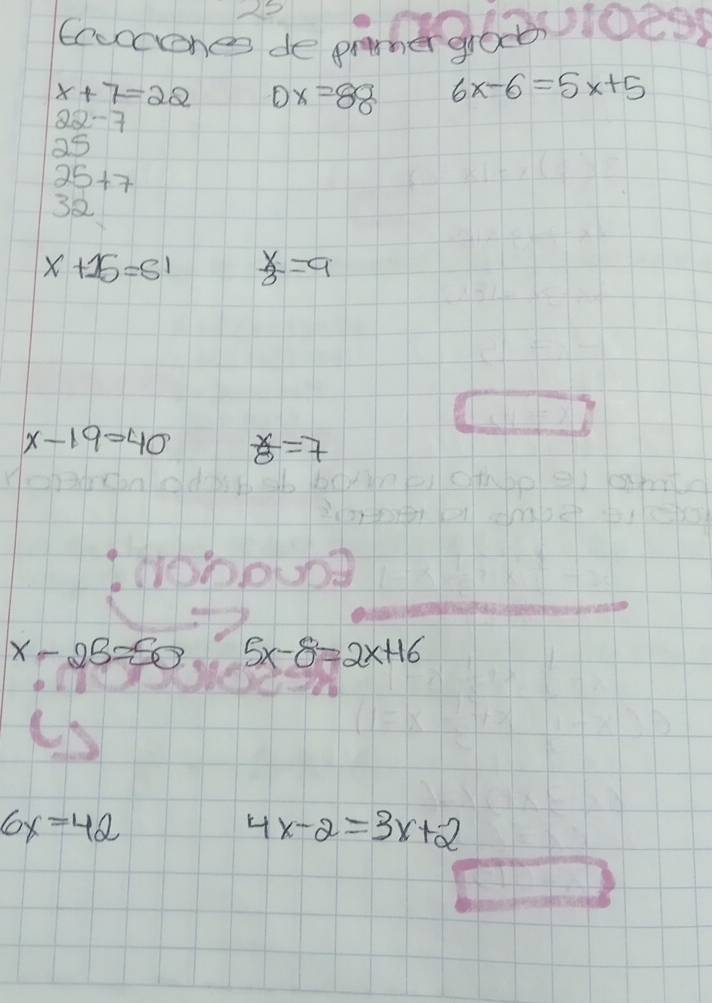 Ecuaciones de primer grado
x+7=22 0x=88 6x-6=5x+5
22-7
25
25+7
32
x+15=51 x/3=9
x-19=40 x/8=7
x-25=50 5x-8=2x+16
6x=42 4x-2=3x+2